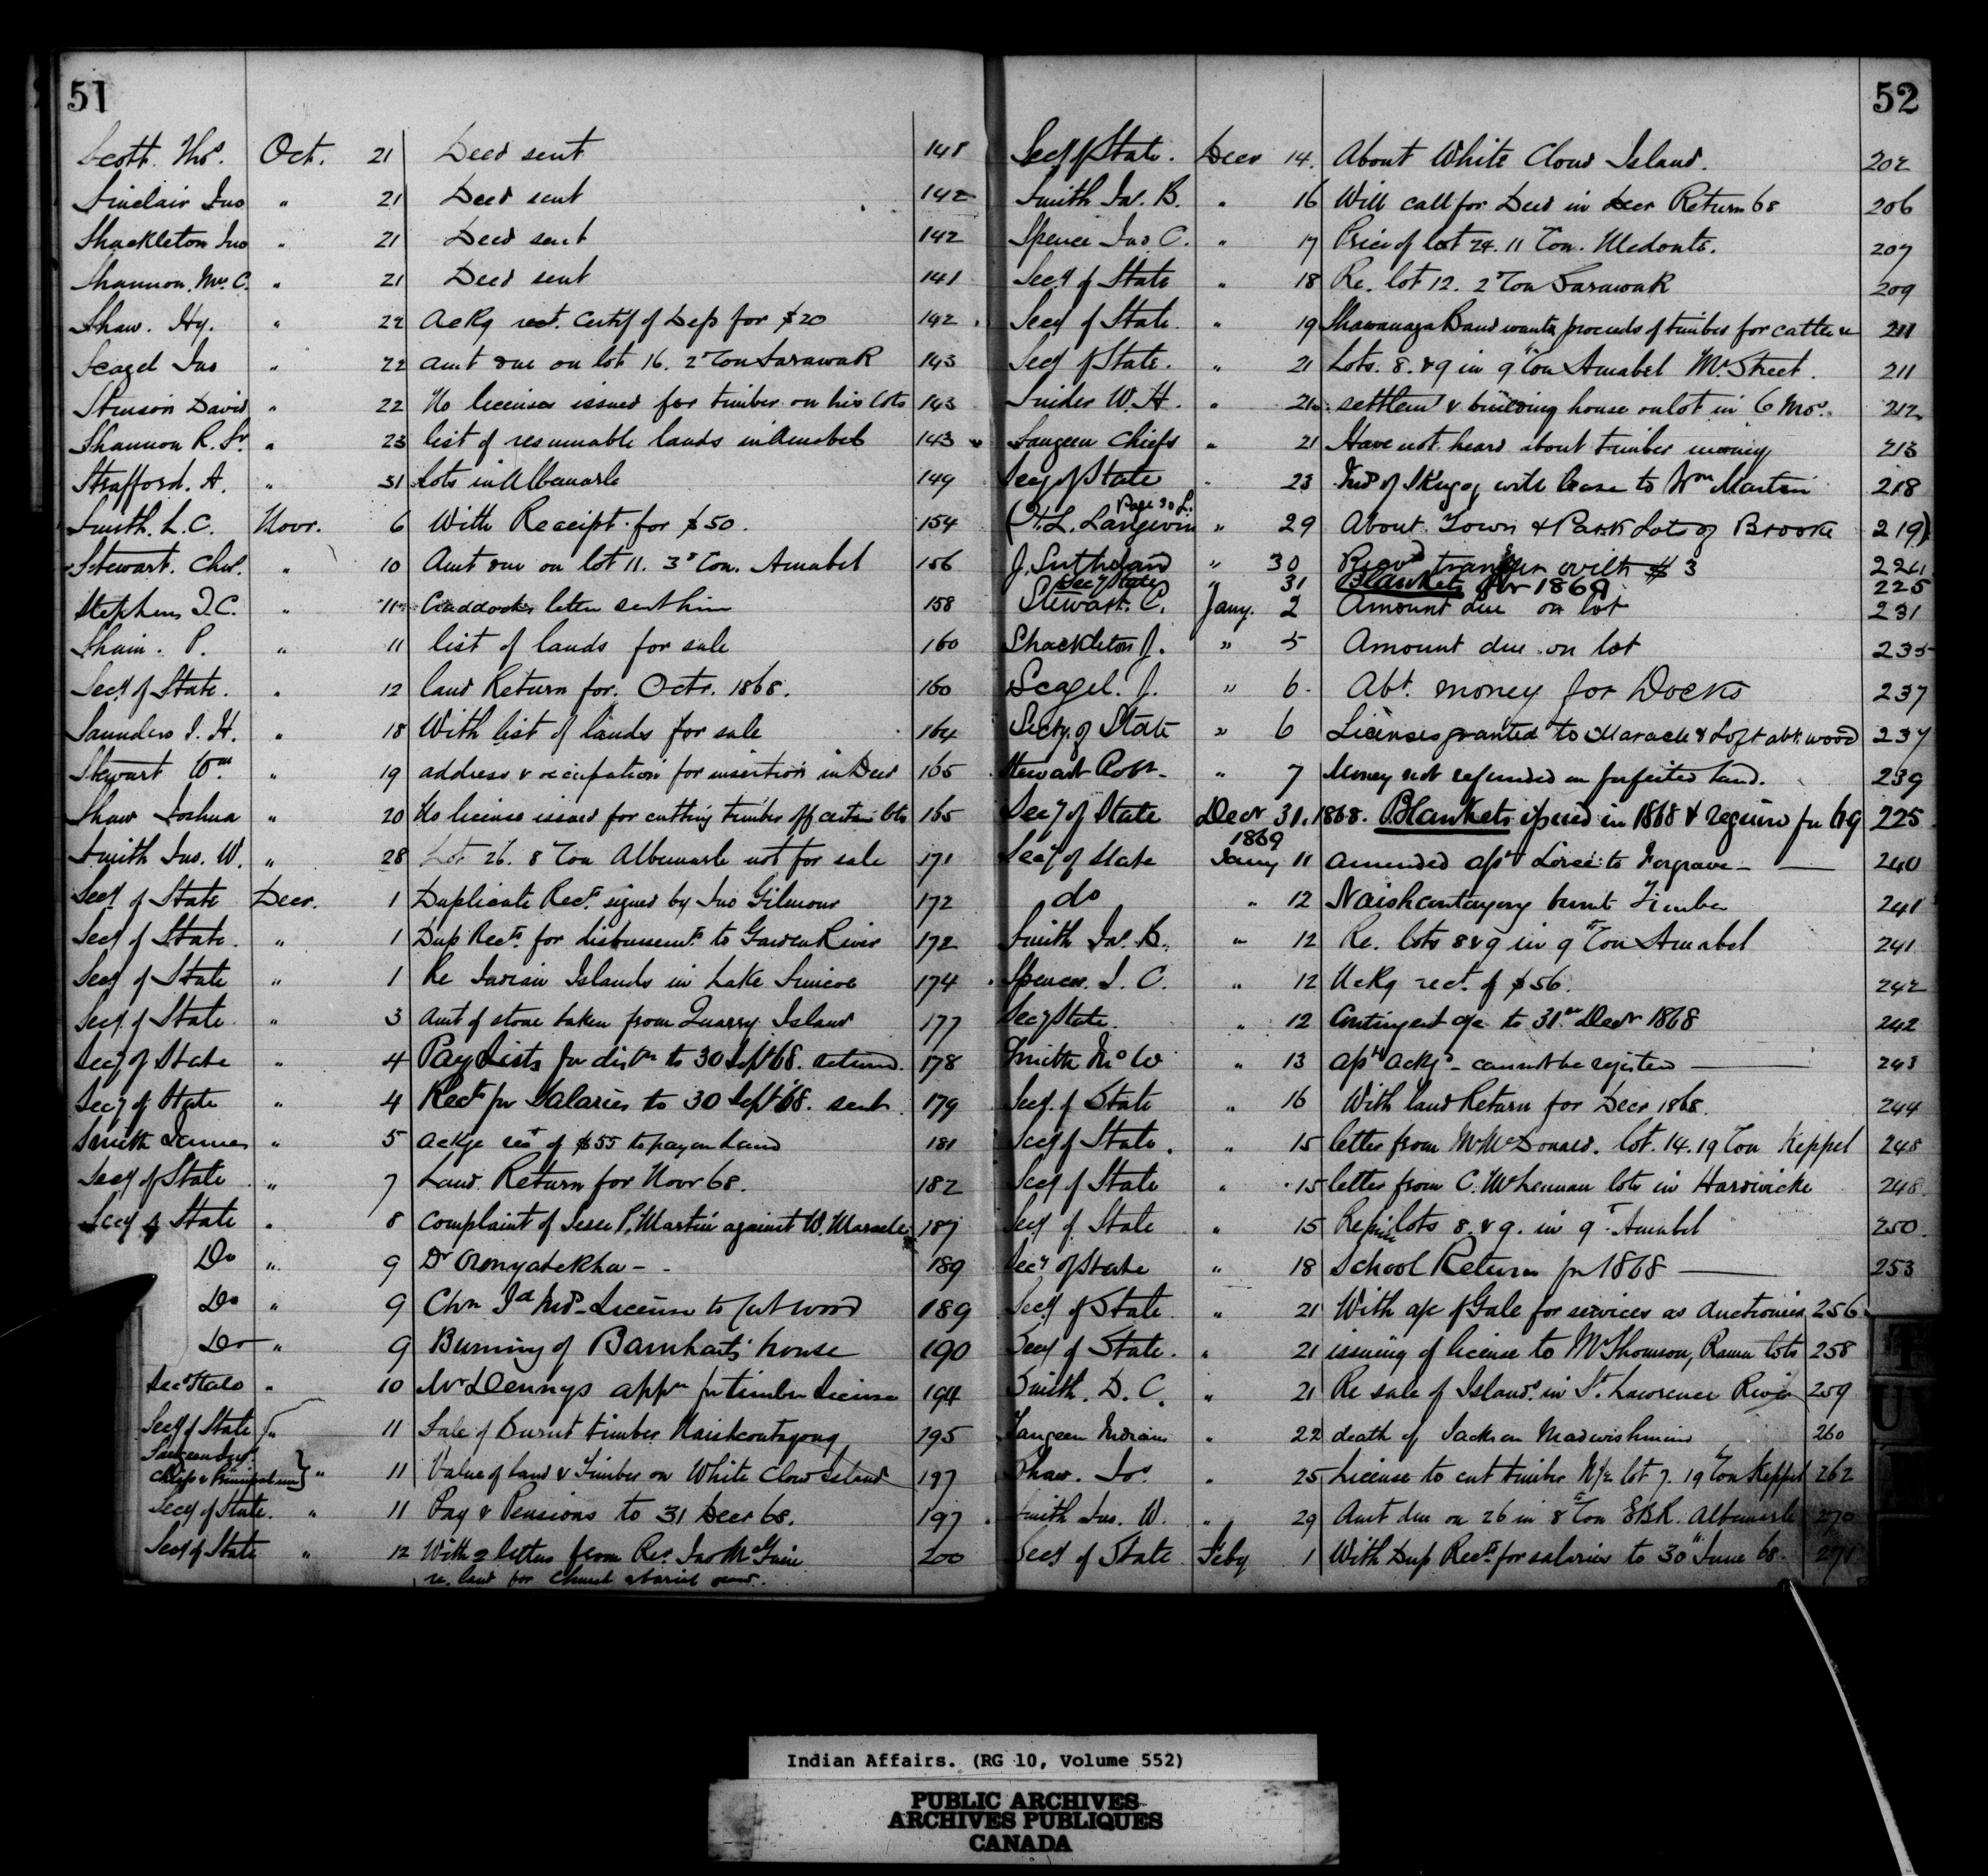 51
Scott. Thos. Oct. 21 Deed sent 141
Sinclair Jno " 21 Deed sent 142
Shackleton Jno " 21 Deed sent 142
Shannon. Mrs. C. " 21 Deed sent 141
Shaw. Hy. " 22 Ackg rect. Certif of Dep for $20 142
Seagel Jno " 22 Amt due on lot 16. 2d Con Sarawak 143
Stinson David " 22 No licenses issued for timber on his lots 143
Shannon R. Sr. " 23 list of resumable lands in Amabel 143
Strafford. A. " 31 Lots in Albemarle 149
Smith. L. C. Novr. 6 With Receipt for $50. 154
Stewart. Chas. " 10 Amt due on lot 11. 3d Con. Amabel 156
Stephens T. C. " 11 Craddocks letter sent him 158
Shain. P. " 11 list of lands for sale 160
Secy of State. " 12 land Return for Octr. 1868. 160
Saunders J. H. " 18 With list of lands for sale 164
Stewart Wm " 19 address & occupation for insertion in Deed 165
Shaw Joshua " 20 No license issued for cutting timber off certain lots 165
Smith Jno. W. " 28 Lot 26. 8 Con Albemarle not for sale 171
Secy of State Decr. 1 Duplicate Rects. signed by Jno Gilmour 172
Secy of State. " 1 Dup Rects for disbursemts to Garden River 172
Secy of State " 1 Re Indian Islands in Lake Simcoe 174
Secy. of State " 3 Amt of stone taken from Quarry Island 177
Secy of State " 4 Pay Lists for distn to 30 Sept 68. returned. 178
Secy of State " 4 Rects for Salaries to 30 Sept 68. sent 179
Smith James " 5 Ackge rect of $55 to pay on land 181
Secy of State " 7 Land Return for Novr 68. 182
Secy of State " 8 Complaint of Jesse P. Martin against W. Maracle 187
Do " 9 Dr Oronyatekha - 189
Do " 9 Chn Id Inds - License to Cut wood 189
Do " 9 Burning of Barnharts house 190
Secy State " 10 Mr Dennys appn for timber License 194
Secy of State " 11 Sale of Burnt timber Naiskoutayong 195
Saugeen Indns
Chiefs & Principal men } " 11 Value of land & Timber on White Cloud Island 197
Secy of State. " 11 Pay & Pensions to 31 Decr 68. 197
Secy of State " 12 With 2 letters from Rev. Jno McGuire 200
re. land for Church & burial
52
Secy of State. Decr 14. About White Cloud Island. 202
Smith Jas. B. " 16 Will call for Deed in Decr Return 68 206
Spence Jno C. " 17 Price of lot 24. 11 Con. Medonte. 207
Secy of State " 18 Re. lot 12. 2d Con Sarawak 209
Secy of State. " 19 Shawanaga Band wants proceeds of timber for cattle &c 211
Secy of State. " 21 Lots. 8. & 9 in 9th Con Amabel Mr. Street. 211
Snider W. H. " 21 settlemt & building house on lot in 6 Mos. 212
Saugeen Chiefs " 21 Have not heard about timber money 213
Secy of State " 23 Inds of Skugog with lease to Wm Martin 218
Page 30 L.
(H. L. Langevin " 29 About Town & Park Lots of Brooke 219)
J. Sutherland " 30 Recvd transfer with $3 224
Secy State " 31 Blankets for 1869 225
Stewart. C. Jany. 2 Amount due on lot 231
Shackleton J. " 5 Amount due on lot 235
Seagel. J. " 6. Abt. money for Docks 237
Secty. of State " 6 Licenses granted to Maracle & Loft abt. wood 237
Stewart Robt. " 7 Money not refunded on forfeited land. 239
Secy of State Decr 31. 1868. Blankets issued in 1868 & required for 69 225
1869
Secy of State Jany 11 amended apt Loree to Forgrave - 240
do " 12 Naiskoutayong burnt Timber 241
Smith Jas. B. " 12 Re. lots 8 & 9 in 9th Con Amabel 241
Spence. J. C. " 12 Ackg rect. of $56. 242
Secy State. " 12 Contingent a/c to 31st Decr 1868 242
Smith Jno W " 13 apt ackgd - cannot be registered 243
Secy. of State " 16 With land Return for Decr 1868. 244
Secy of State. " 15 letter from Mr McDonald. lot. 14. 19 Con Keppel 248
Secy of State " 15 letter from C. McLennan lots in Hardwicke 248.
Secy of State " 15 Re lots 8. & 9. in 9th Amabel 250.
Secy of State " 18 School Return for 1868 253
Secy of State " 21 With a/c of Gale for services as Auctioneer 256
Secy of State. " 21 issuing of license to Mr Thomson, Rama lots 258
Smith. D. C. " 21 Re sale of Islands. in St. Lawrence River 259
Saugeen Indians " 22 death of Jackson Madwishmind 260
Shaw. Jos. " 25 License to cut timber N/2 lot 7. 19th Con Keppel 262
Smith Jno. W. " 29 Amt due on 26 in 8th Con E B R. Albemarle 270
Secy of State Feby 1 With Dup Rects for salaries to 30th June 68. 271
Indian Affairs. (RG 10, Volume 552)
PUBLIC ARCHIVES
ARCHIVES PUBLIQUES
CANADA